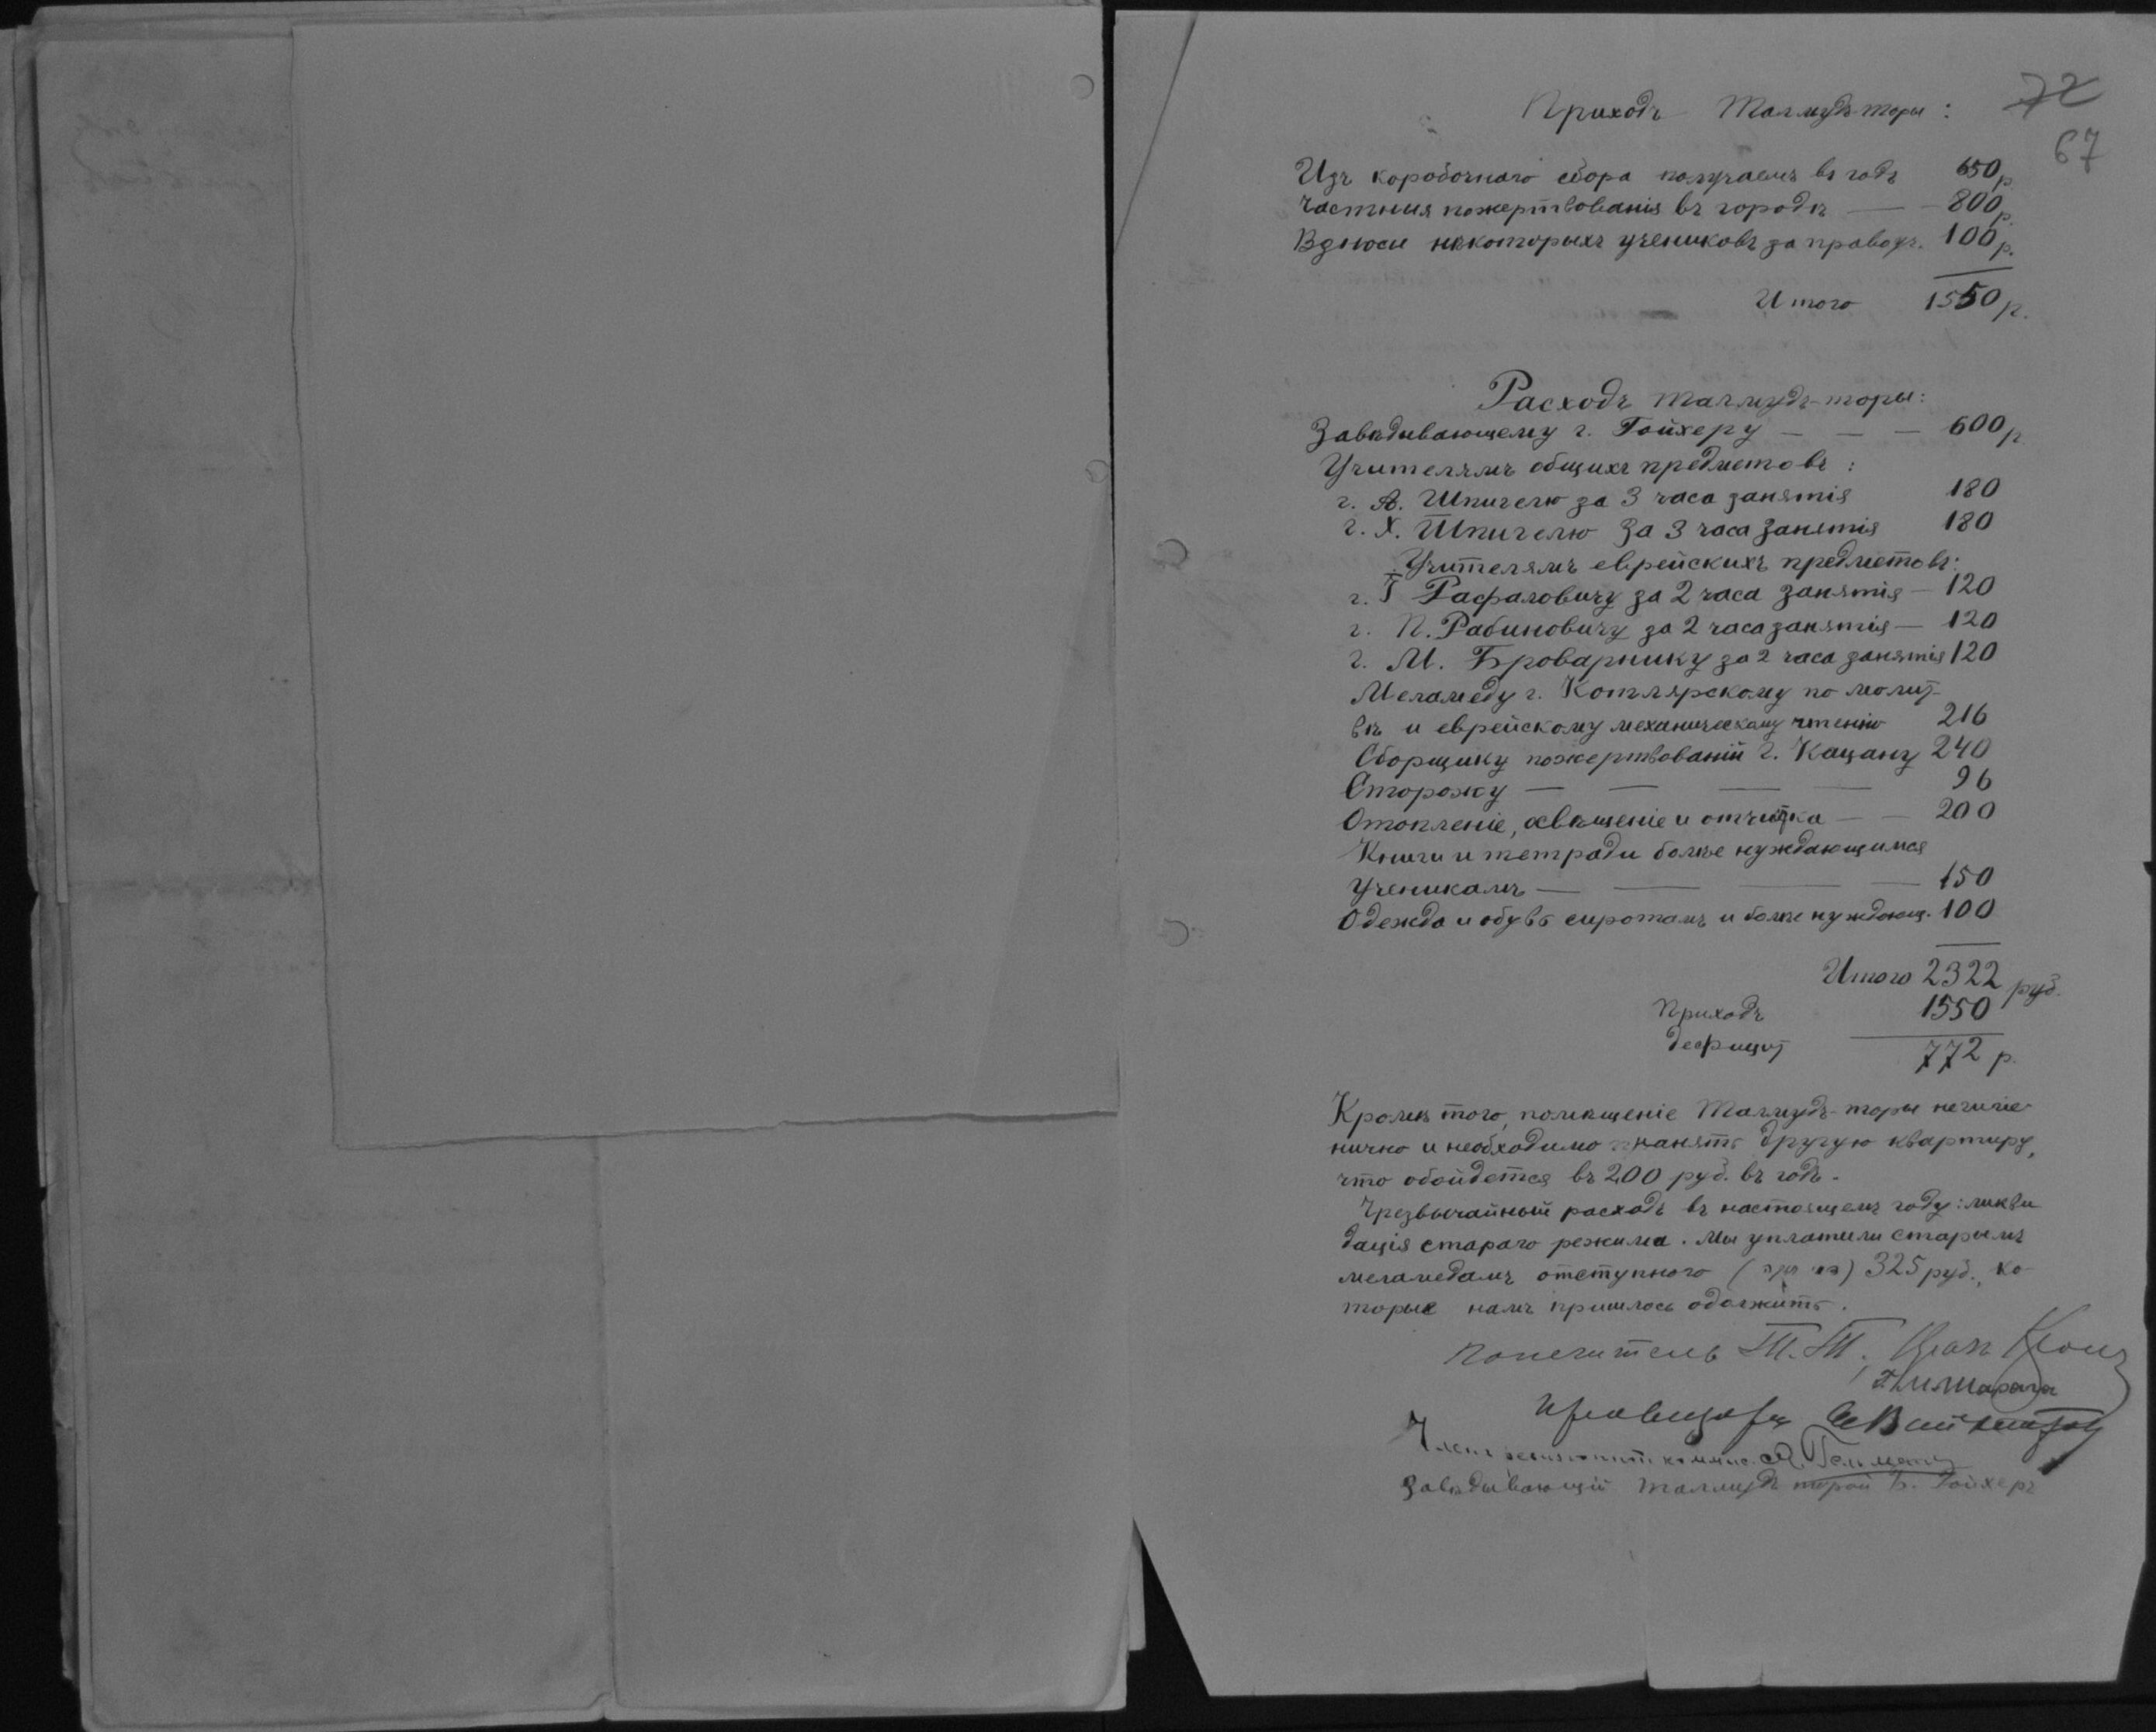 72
67
Приходъ Талмудъ-торы:
Изъ коробочнаго сбора получаемъ въ годъ 650 р.
Частныя пожертвованія въ городѣ — 800 р.
Взносы нѣкоторыхъ учениковъ за правоуч. 100 р.
Итого 1550 р.
Расходъ талмудъ-торы:
Завѣдывающему г. Гойхеру — — — 600 р.
Учителямъ общихъ предметовъ:
г. А. Шпигелю за 3 часа занятія 180
г. Х. Шпигелю за 3 часа занятія 180
Учителямъ еврейскихъ предметовъ:
г. Г Рафаловичу за 2 часа занятія — 120
г. П. Рабиновичу за 2 часа занятія — 120
г. М. Броварнику за 2 часа занятія 120
Меламеду г. Котлярскому по молит-
вѣ и еврейскому механическому чтенію 216
Сборщику пожертвованій г. Кацану 240
Сторожу — — — — 96
Отопленіе, освѣщеніе и отчистка — — 200
Книги и тетради болѣе нуждающимся
ученикамъ — — — — 150
Одежда и обувь сиротамъ и болѣе нуждающ. 100
Итого 2322 руб.
Приходъ 1550
дефицит 772 р.
Кромѣ того, помѣщеніе Талмудъ-торы негигіе-
нично и необходимо нанять другую квартиру,
что обойдется въ 200 руб. въ годъ.
Чрезвычайный расходъ въ настоящемъ году: ликви
дація стараго режима. Мы уплатили старымъ
меламедамъ отступного () 325 руб., ко-
торые намъ пришлось одолжить.
Попечитель Т.Т.
Членъ ревизіонной коммис. А. Гельманъ
Завѣдывающій талмудъ торой Б. Гойхеръ